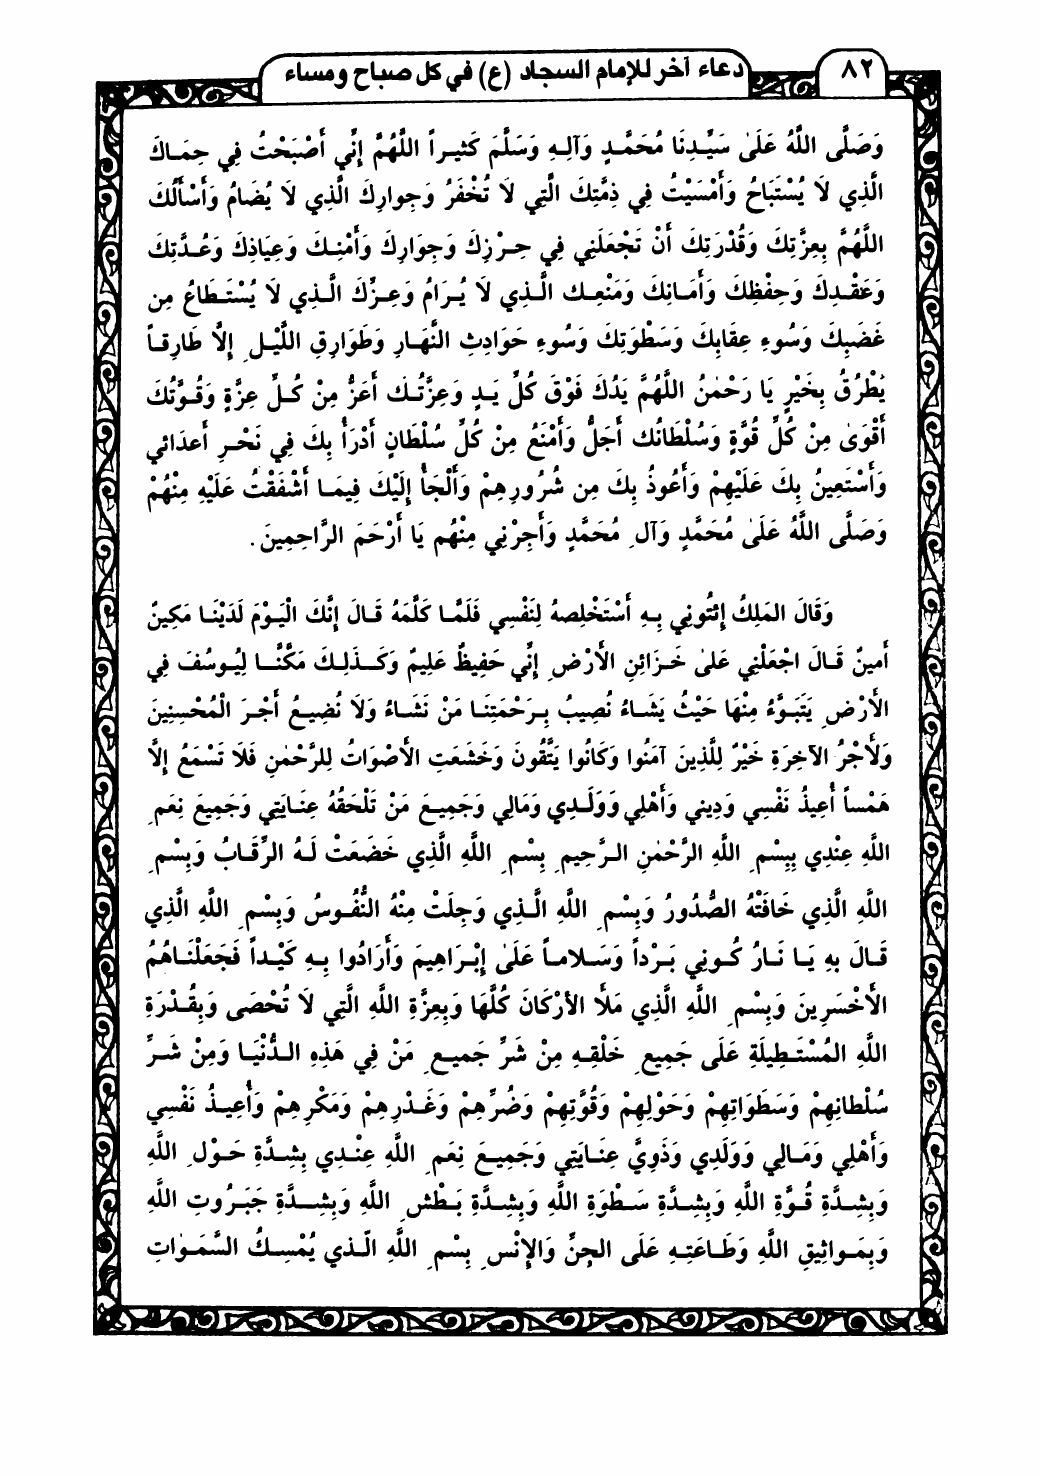 ٨٢
دعاء آخر للإمام السجاد (ع) في كل صباح ومساء
وَصَلَّى اللَّهُ عَلَىٰ سَيِّدِنَا مُحَمَّدٍ وَآلِهِ وَسَلَّمَ كَثيراً اللَّهُمَّ إِنِّي أَصْبَحْتُ فِي حِمَاكَ
الَّذِي لَا يُسْتَبَاحُ وَأَمْسَيْتُ فِي ذِمَّتِكَ الَّتِي لَا تُخْفَرُ وَجِوارِكَ الَّذِي لَا يُضَامُ وَأَسْأَلُكَ
اللَّهُمَّ بِعِزَّتِكَ وَقُدْرَتِكَ أَنْ تَجْعَلَنِي فِي حِرْزِكَ وَجِوَارِكَ وَأَمْنِكَ وَعِيَاذِكَ وَعُدَّتِكَ
وَعَقْدِكَ وَحِفْظِكَ وَأَمَانِكَ وَمَنْعِك الَّذِي لَا يُرَامُ وَعِزِّكَ الَّذِي لَا يُسْتَطَاعُ مِن
غَضَبِكَ وَسُوءِ عِقَابِكَ وَسَطْوَتِكَ وَسُوءِ حَوَادِثِ النَّهَارِ وَطَوَارِقِ اللَّيْلِ إِلَّا طَارِقاً
يَطْرُقُ بِخَيْرٍ يَا رَحْمٰنُ اللَّهُمَّ يَدُكَ فَوْقَ كُلِّ يَدٍ وَعِزَّتُكَ أَعَزُّ مِنْ كُلِّ عِزَّةٍ وَقُوَّتُكَ
أَقْوَىٰ مِنْ كُلِّ قُوَّةٍ وَسُلْطَانُك أَجَلُّ وَأَمْنَعُ مِنْ كُلِّ سُلْطَانٍ أَدْرَأُ بِكَ فِي نَحْرِ أَعدَائي
وَأَسْتَعِينُ بِكَ عَلَيْهِمْ وَأَعُوذُ بِكَ مِن شُرُورِهِمْ وَأَلْجَأُ إِلَيْكَ فِيمَا أَشْفَقْتُ عَلَيْهِ مِنْهُمْ
وَصَلَّى اللَّهُ عَلَىٰ مُحَمَّدٍ وَآلِ مُحَمَّدٍ وَأَجِرْنِي مِنْهُم يَا أَرْحَمَ الرَّاحِمِينَ.
وَقَالَ المَلِكُ إئْتُونِي بِهِ أَسْتَخْلِصهُ لِنَفْسِي فَلَمَّا كَلَّمَهُ قَالَ إِنَّكَ الْيَوْمَ لَدَيْنَا مَكِينٌ
أَمينٌ قَالَ اجْعَلْنِي عَلىٰ خَزَائِنِ الأَرْضِ إِنِّي حَفِيظٌ عَلِيمٌ وَكَذلِكَ مَكَّنَّا لِيُوسُفَ فِي
الأَرْضِ يَتَبَوَّءُ مِنْهَا حَيْثُ يَشَاءُ نُصِيبُ بِرَحْمَتِنَا مَنْ نَشَاءُ وَلَا نُضِيعُ أَجْرَ الْمُحْسِنِينَ
وَلَأَجْرُ الآخِرَةِ خَيْرٌ لِلَّذِينَ آمَنُوا وَكَانُوا يَتَّقُونَ وَخَشَعَتِ الأَصْوَاتُ لِلرَّحْمٰنِ فَلَا تَسْمَعُ إِلَّا
هَمْساً أُعِيذُ نَفْسِي وَدِيني وَأَهْلِي وَوَلَدِي وَمَالِي وَجَمِيعَ مَنْ تَلْحَقُهُ عِنَايَتِي وَجَمِيعَ نِعَمِ
اللَّهِ عِنْدِي بِبِسْمِ اللَّهِ الرَّحْمٰنِ الرَّحِيمِ بِسْمِ اللَّهِ الَّذِي خَضَعَتْ لَهُ الرِّقَابُ وَبِسْمِ
اللَّهِ الَّذِي خَافَتْهُ الصُّدُورُ وَبِسْمِ اللَّهِ الَّذِي وَجِلَتْ مِنْهُ النُّفُوسُ وَبِسْمِ اللَّهِ الَّذِي
قَالَ بهِ يَا نَارُ كُونِي بَرْداً وَسَلاماً عَلَىٰ إِبْرَاهِيمَ وَأَرَادُوا بِهِ كَيْداً فَجَعَلْنَاهُمُ
الأَخْسَرِينَ وَبِسْمِ اللَّهِ الَّذِي مَلَأَ الأَرْكَانَ كُلَّهَا وَبِعِزَّةِ اللَّهِ الَّتِي لَا تُحْصَى وَبِقُدْرَةِ
اللَّهِ المُسْتَطِيلَةِ عَلَى جَمِيعِ خَلْقِهِ مِنْ شَرِّ جَمِيعِ مَنْ فِي هَذِهِ الدُّنْيَا وَمِنْ شَرِّ
سُلْطانِهِمْ وَسَطَوَاتِهِمْ وَحَوْلِهِمْ وَقُوَّتِهِمْ وَضُرِّهِمْ وَغَدْرِهِمْ وَمَكْرِهِمْ وَأُعِيذُ نَفْسِي
وَأَهْلِي وَمَالِي وَوَلَدِي وَذَوِيَّ عِنَايَتِي وَجَمِيعَ نِعَمِ اللَّهِ عِنْدِي بِشِدَّةِ حَوْلِ اللَّهِ
وَبِشِدَّةِ قُوَّةِ اللَّهِ وَبِشِدَّةِ سَطْوَةِ اللَّهِ وَبِشِدَّةِ بَطْشِ اللَّهِ وَبِشِدَّةِ جَبَرُوتِ اللَّهِ
وَبِمَواثِيقِ اللَّهِ وَطَاعَتِهِ عَلَى الجِنِّ وَالإِنْسِ بِسْمِ اللَّهِ الَّذي يُمْسِكُ السَّمَوَاتِ